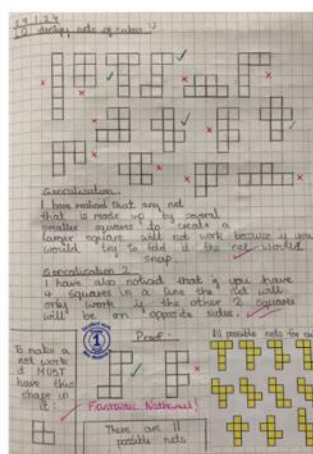 19.1.24
LO: identify nets of cubes
Generalisation
I have realised that any net
that is made up by several
smaller squares to create a
larger square will not work because if you
would try to fold it the net would
snap.
Generalisation 2
I have also noticed that if you have
4 squares in a line the net will
only work if the other 2 squares
will be on opposite sides.
1
Proof:
All possible nets for
To make a
net work
it MUST
have this
shape in
it:
Fantastic Nathaniel!
There are 11
possible nets